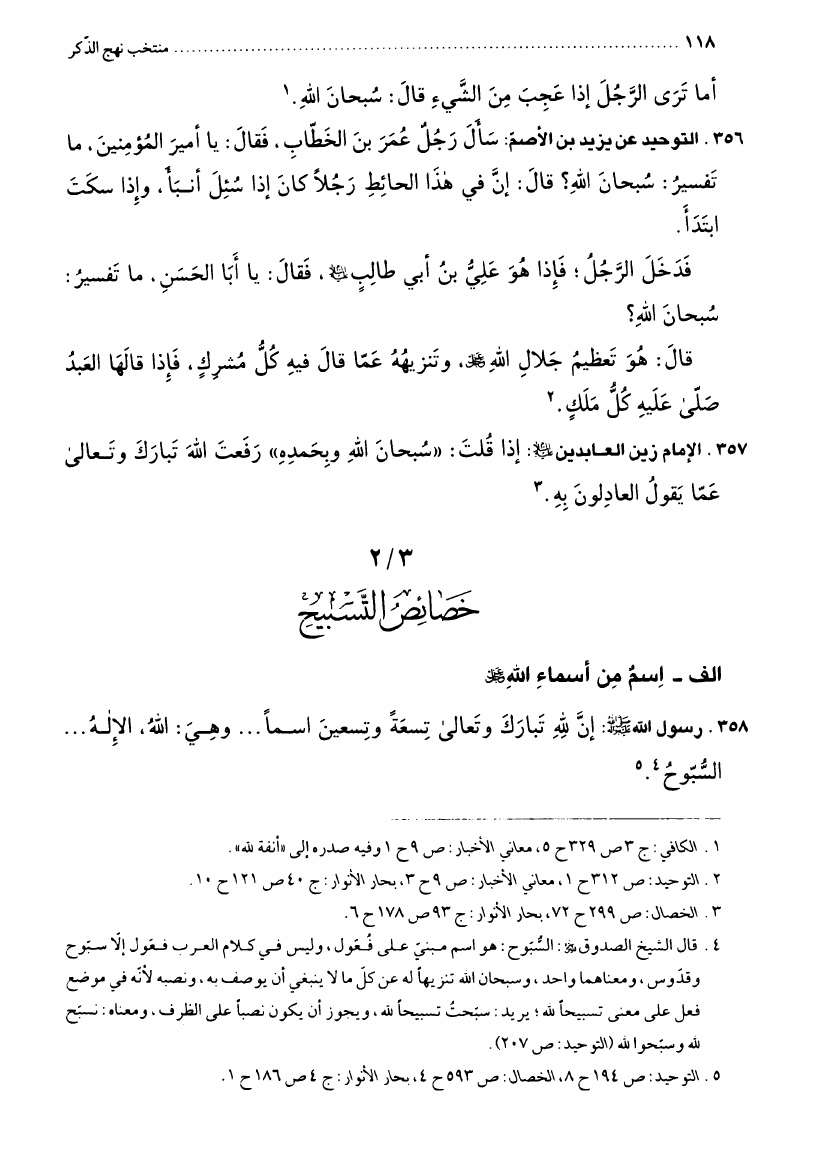 ١١٨ ........................................................................ منتخب نهج الذّكر
أما تَرَى الرَّجُلَ إذا عَجِبَ مِنَ الشَّيءِ قالَ: سُبحانَ اللهِ.١
٣٥٦ . التوحيد عن يزيد بن الأصمّ: سَأَلَ رَجُلٌ عُمَرَ بنَ الخَطّابِ، فَقالَ: يا أميرَ المُؤمِنينَ، ما
تَفسيرُ: سُبحانَ اللهِ؟ قالَ: إنَّ في هٰذَا الحائِطِ رَجُلاً كانَ إذا سُئِلَ أنبَأَ، وإذا سكَتَ
ابتَدَأَ.
فَدَخَلَ الرَّجُلُ؛ فَإِذا هُوَ عَلِيُّ بنُ أبي طالِبٍ ﷷ، فَقالَ: يا أَبَا الحَسَنِ، ما تَفسيرُ:
سُبحانَ اللهِ؟
قالَ: هُوَ تَعظيمُ جَلالِ اللهِ ﷻ، وتَنزيهُهُ عَمّا قالَ فيهِ كُلُّ مُشرِكٍ، فَإِذا قالَهَا العَبدُ
صَلّىٰ عَلَيهِ كُلُّ مَلَكٍ.٢
٣٥٧ . الإمام زين العـابدين ﷷ: إذا قُلتَ: «سُبحانَ اللهِ وبِحَمدِهِ» رَفَعتَ اللهَ تَبارَكَ وتَـعالىٰ
عَمّا يَقولُ العادِلونَ بِهِ.٣
٢/٣
خَصائِصُ التَّسبيحِ
الف ـ اِسمٌ مِن أسماءِ اللهِ ﷻ
٣٥٨ . رسول الله ﷺ: إنَّ لِلّهِ تَبارَكَ وتَعالىٰ تِسعَةً وتِسعينَ اسـماً... وهِـيَ: اللهُ، الإِلٰـهُ...
السُّبّوحُ٤.٥
١ . الكافي: ج ٣ ص ٣٢٩ ح ٥، معاني الأخبار: ص ٩ ح ١ وفيه صدره إلى «أنفة لله».
٢ . التوحيد: ص ٣١٢ ح ١، معاني الأخبار: ص ٩ ح ٣، بحار الأنوار: ج ٤٠ ص ١٢١ ح ١٠.
٣ . الخصال: ص ٢٩٩ ح ٧٢، بحار الأنوار: ج ٩٣ ص ١٧٨ ح ٦.
٤ . قال الشيخ الصدوق: السُّبّوح: هو اسم مـبنيّ عـلى فُـعّول، وليس فـي كـلام العـرب فـعّول إلّا سـبّوح
وقدّوس، ومعناهما واحد، وسبحان الله تنزيهاً له عن كلّ ما لا ينبغي أن يوصف به، ونصبه لأنّه في موضع
فعل على معنى تسبيحاً لله؛ يريد: سبّحتُ تسبيحاً لله، ويجوز أن يكون نصباً على الظرف، ومعناه: نسبّح
لله وسبّحوا لله (التوحيد: ص ٢٠٧).
٥ . التوحيد: ص ١٩٤ ح ٨، الخصال: ص ٥٩٣ ح ٤، بحار الأنوار: ج ٤ ص ١٨٦ ح ١.